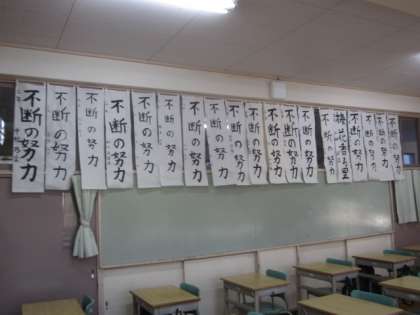 不断の努力
不断の努力
不断の努力
梅花香る里
不断の努力
不断の努力
不断の努力
不断の努力
不断の努力
不断の努力
不断の努力
不断の努力
不断の努力
不断の努力
不断の努力
不断の努力
不断の努力
不断の努力